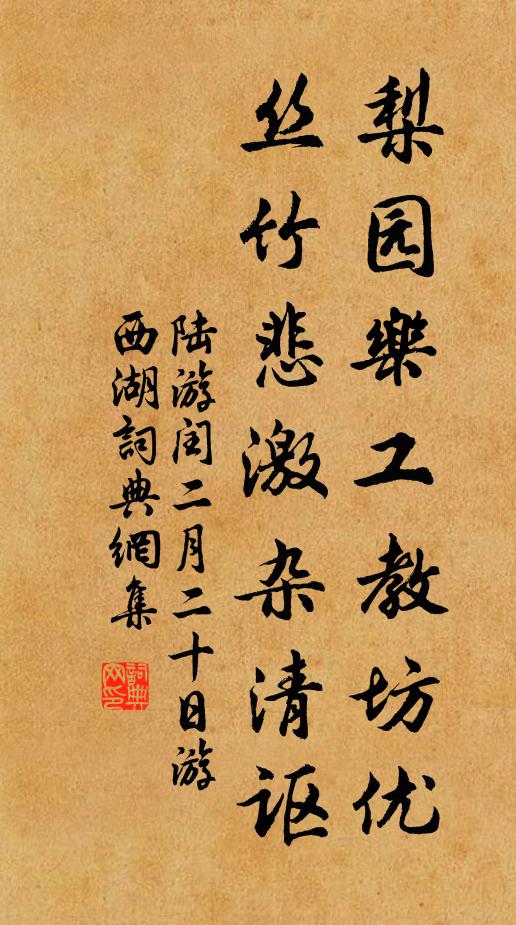 梨园樂工教坊优
丝竹悲激杂清讴
陆游闰二月二十日游
西湖詞典網集
詞典网印